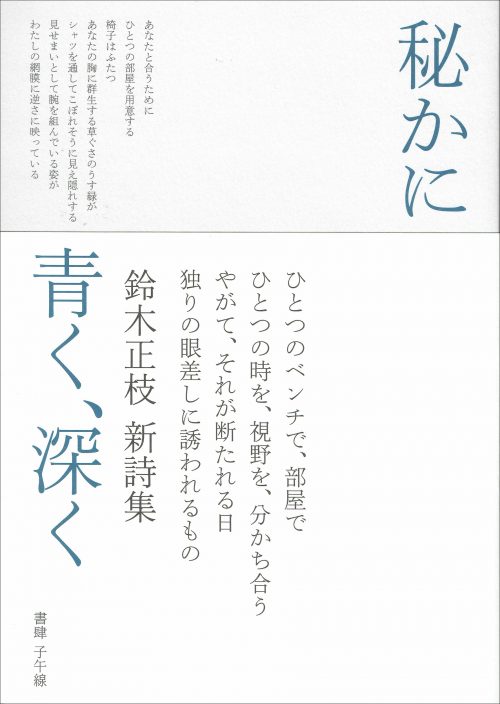 秘かに
あなたと合うために
ひとつの部屋を用意する
椅子はふたつ
あなたの胸に群生する草ぐさのうす緑が
シャツを通してこぼれそうに見え隠れする
見せまいとして腕を組んでいる姿が
わたしの網膜に逆さに映っている
ひとつのベンチで、部屋で
ひとつの時を、視野を、分かち合う
やがて、それが断たれる日
独りの眼差しに誘われるもの
鈴木正枝 新詩集
青く、深く
書肆 子午線